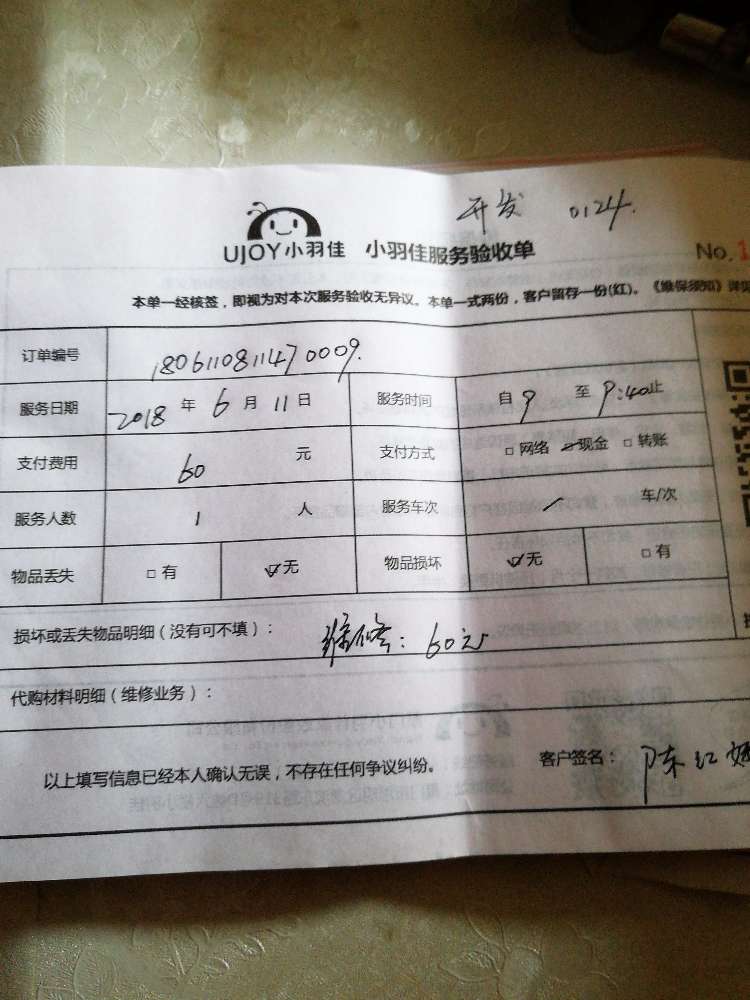 开发 0124.
UJOY小羽佳 小羽佳服务验收单 No.1
本单一经核签，即视为对本次服务验收无异议。本单一式两份，客户留存一份(红)。《维保须知》详见
订单编号 180611081147 0009.
服务日期 2018 年 6 月 11 日 服务时间 自 9 至 9:40止
支付费用 60 元 支付方式 □网络 ☑现金 □转账
服务人数 1 人 服务车次 / 车/次
物品丢失 □有 ☑无 物品损坏 ☑无 □有
损坏或丢失物品明细（没有可不填）： 维修：60元
代购材料明细（维修业务）：
以上填写信息已经本人确认无误，不存在任何争议纠纷。 客户签名： 陈红